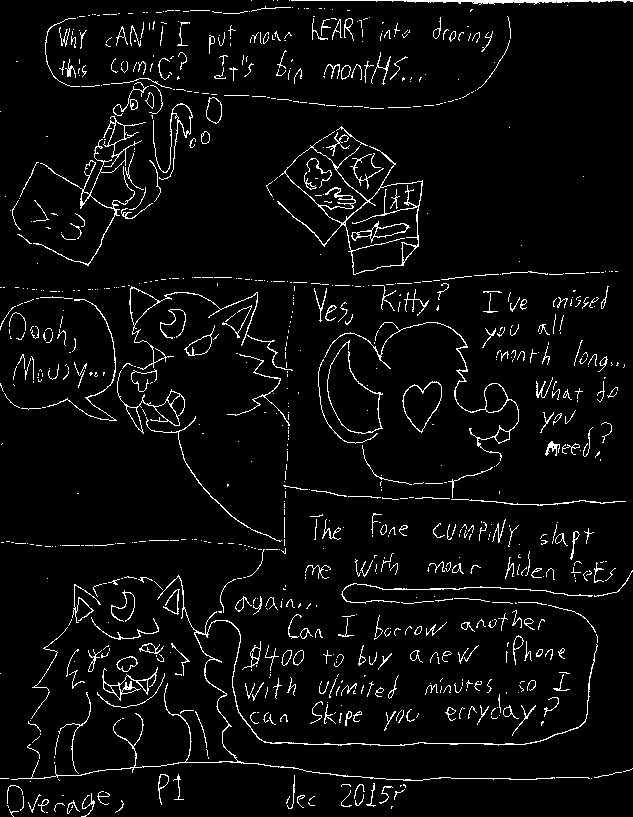 Why cAN"T I put moar hEART into drocing
this comiC? It"s bin montHS...
Oooh,
Mousy...
Yes, Kitty? I've missed
you all
month long...
What do
you
need?
The Fone CUMPiNY slapt
me with moar hiden feEs
again...
Can I borrow another
$400 to buy a new iPhone
with ulimited minutes so I
can Skipe you erryday?
Overage, P1 dec 2015?